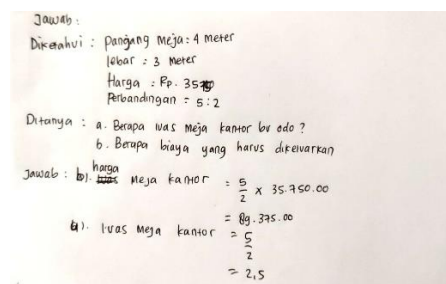 Jawab :
Diketahui : Panjang Meja : 4 meter
lebar : 3 meter
Harga : Rp. 35
Perbandingan = 5 : 2
Ditanya : a. Berapa luas meja kantor bu odo ?
b. Berapa biaya yang harus dikeluarkan
Jawab : b). harga Meja kantor = 5/2 x 35.750.00
= 89.375.00
a). luas meja kantor = 5/2
= 2,5